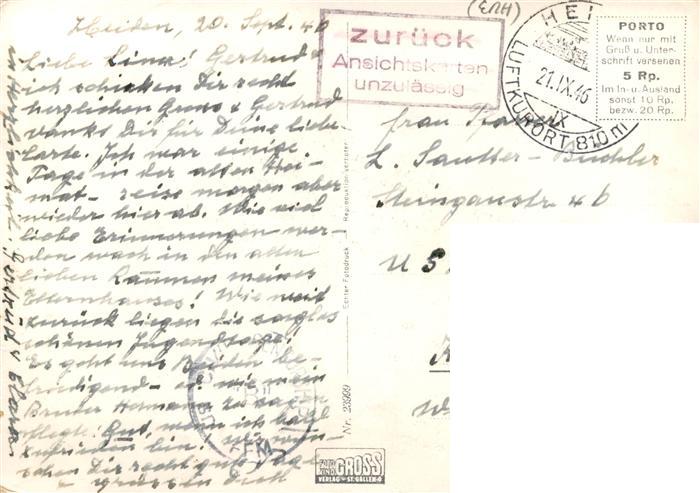 Heiden, 20. Sept. 46
Liebe Lina! Gertrud &
ich schicken Dir recht
herzlichen Gruss & Gertrud
dankt Dir für Deine liebe
Karte. Ich war einige
Tage in der alten Hei-
mat - reise morgen aber
wieder hier ab. Wie viel
liebe Erinnerungen wer-
den wach in den alten
lieben Räumen meines
Elternhauses! Wie weit
zurück liegen die
schönen Jugendtage!
Es geht uns Beiden be-
friedigend - wie mein
Bruder Hermann zu sagen
pflegt: Gut, wenn ich halb
zufrieden bin. Wir wün-
schen Dir recht gute Tage
& grüssen Dich
in Herzlichkeit Gertrud & Clara
zurück
Ansichtskarten
unzulässig
HEI
21.IX.46
IX
LUFTKURORT 810 m
PORTO
Wenn nur mit
Gruß u. Unter-
schrift versehen
5 Rp.
Im In- u. Ausland
sonst 10 Rp.
bezw. 20 Rp.
Frau
L. Sautter-Büchler
4b
US
Reproduktion verboten
Echter Fotodruck
Nr. 23999
FOTO UND GROSS
VERLAG ST. GALLEN